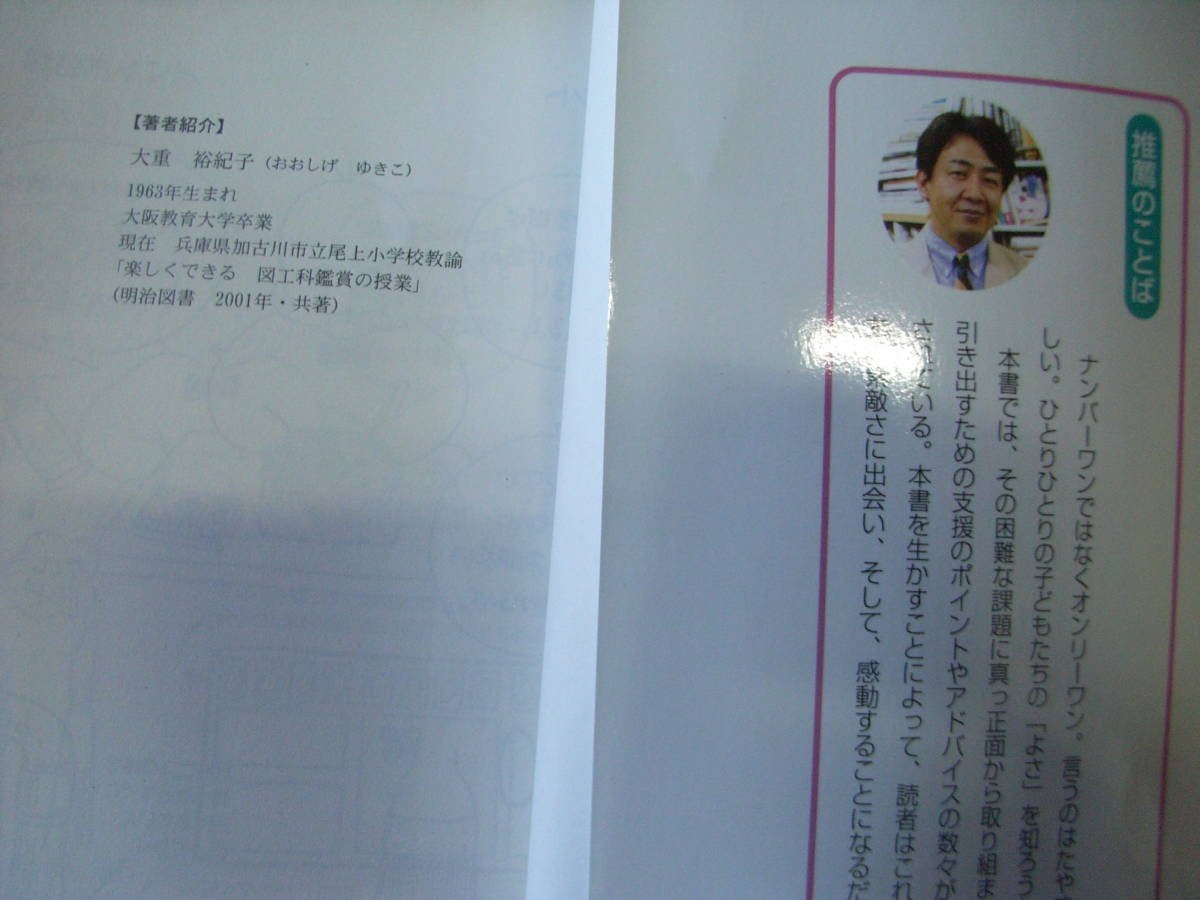 【著者紹介】
大重　裕紀子（おおしげ　ゆきこ）
1963年生まれ
大阪教育大学卒業
現在　兵庫県加古川市立尾上小学校教諭
「楽しくできる　図工科鑑賞の授業」
（明治図書　2001年・共著）
推薦のことば
ナンバーワンではなくオンリーワン。言うのはたや
しい。ひとりひとりの子どもたちの「よさ」を知ろう
本書では、その困難な課題に真っ正面から取り組ま
引き出すための支援のポイントやアドバイスの数々が
ている。本書を生かすことによって、読者はこれ
素敵さに出会い、そして、感動することになるだ